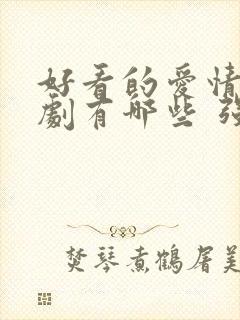 好看的愛情
劇有哪些
焚琴煮鶴屠